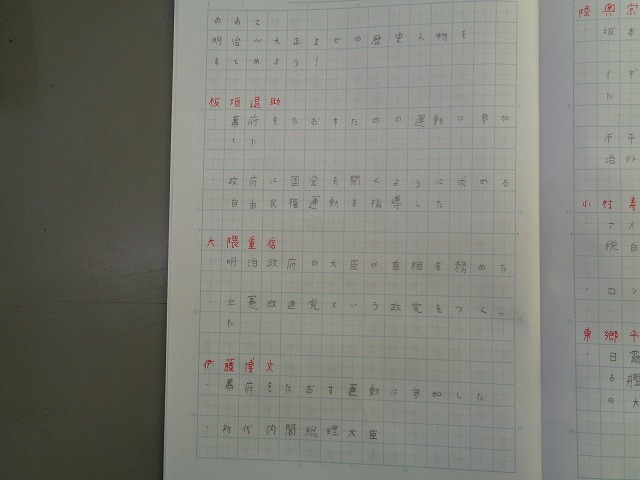 のあて
明治～大正までの歴史人物を
まとめよう！
板垣退助
幕府をたおすための運動に参加
した
・政府に国会を開くように求める
自由民権運動を指導した
大隈重信
・明治政府の大臣や首相を務めた
・立憲改進党という政党をつくっ
た
伊藤博文
・幕府をたおす運動に参加した
・初代内閣総理大臣
陸奥宗
・坂本
・イギ
た
・不平
治外
小村
・アメ
税自
・ロシ
東郷平
・日露
る艦
の大